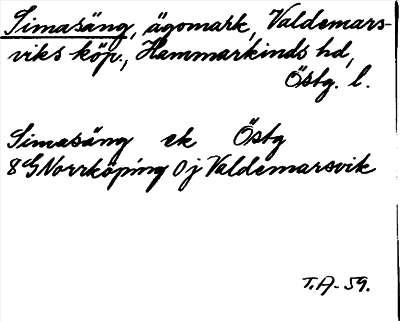 Simasäng, ägomark, Valdemars-
viks köp., Hammarkinds hd,
Östg. l.
Simasäng ek Östg
8G Norrköping 0j Valdemarsvik
T.A-59.